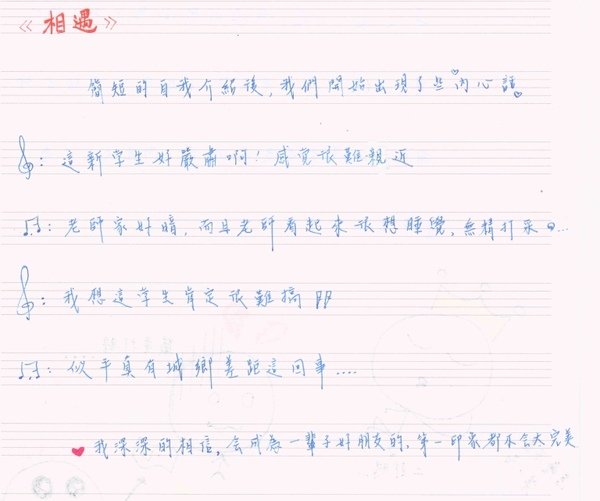 《相遇》
簡短的自我介紹後，我們開始出現了些內心話
：這新学生好嚴肅啊！感覚很難親近
：老師家好暗，而且老師看起來很想睡覺，無精打采…
：我想這学生肯定很難搞
：似乎真有城鄉差距這回事....
我深深的相信，会成為一輩子好朋友的，第一印象都不会太完美